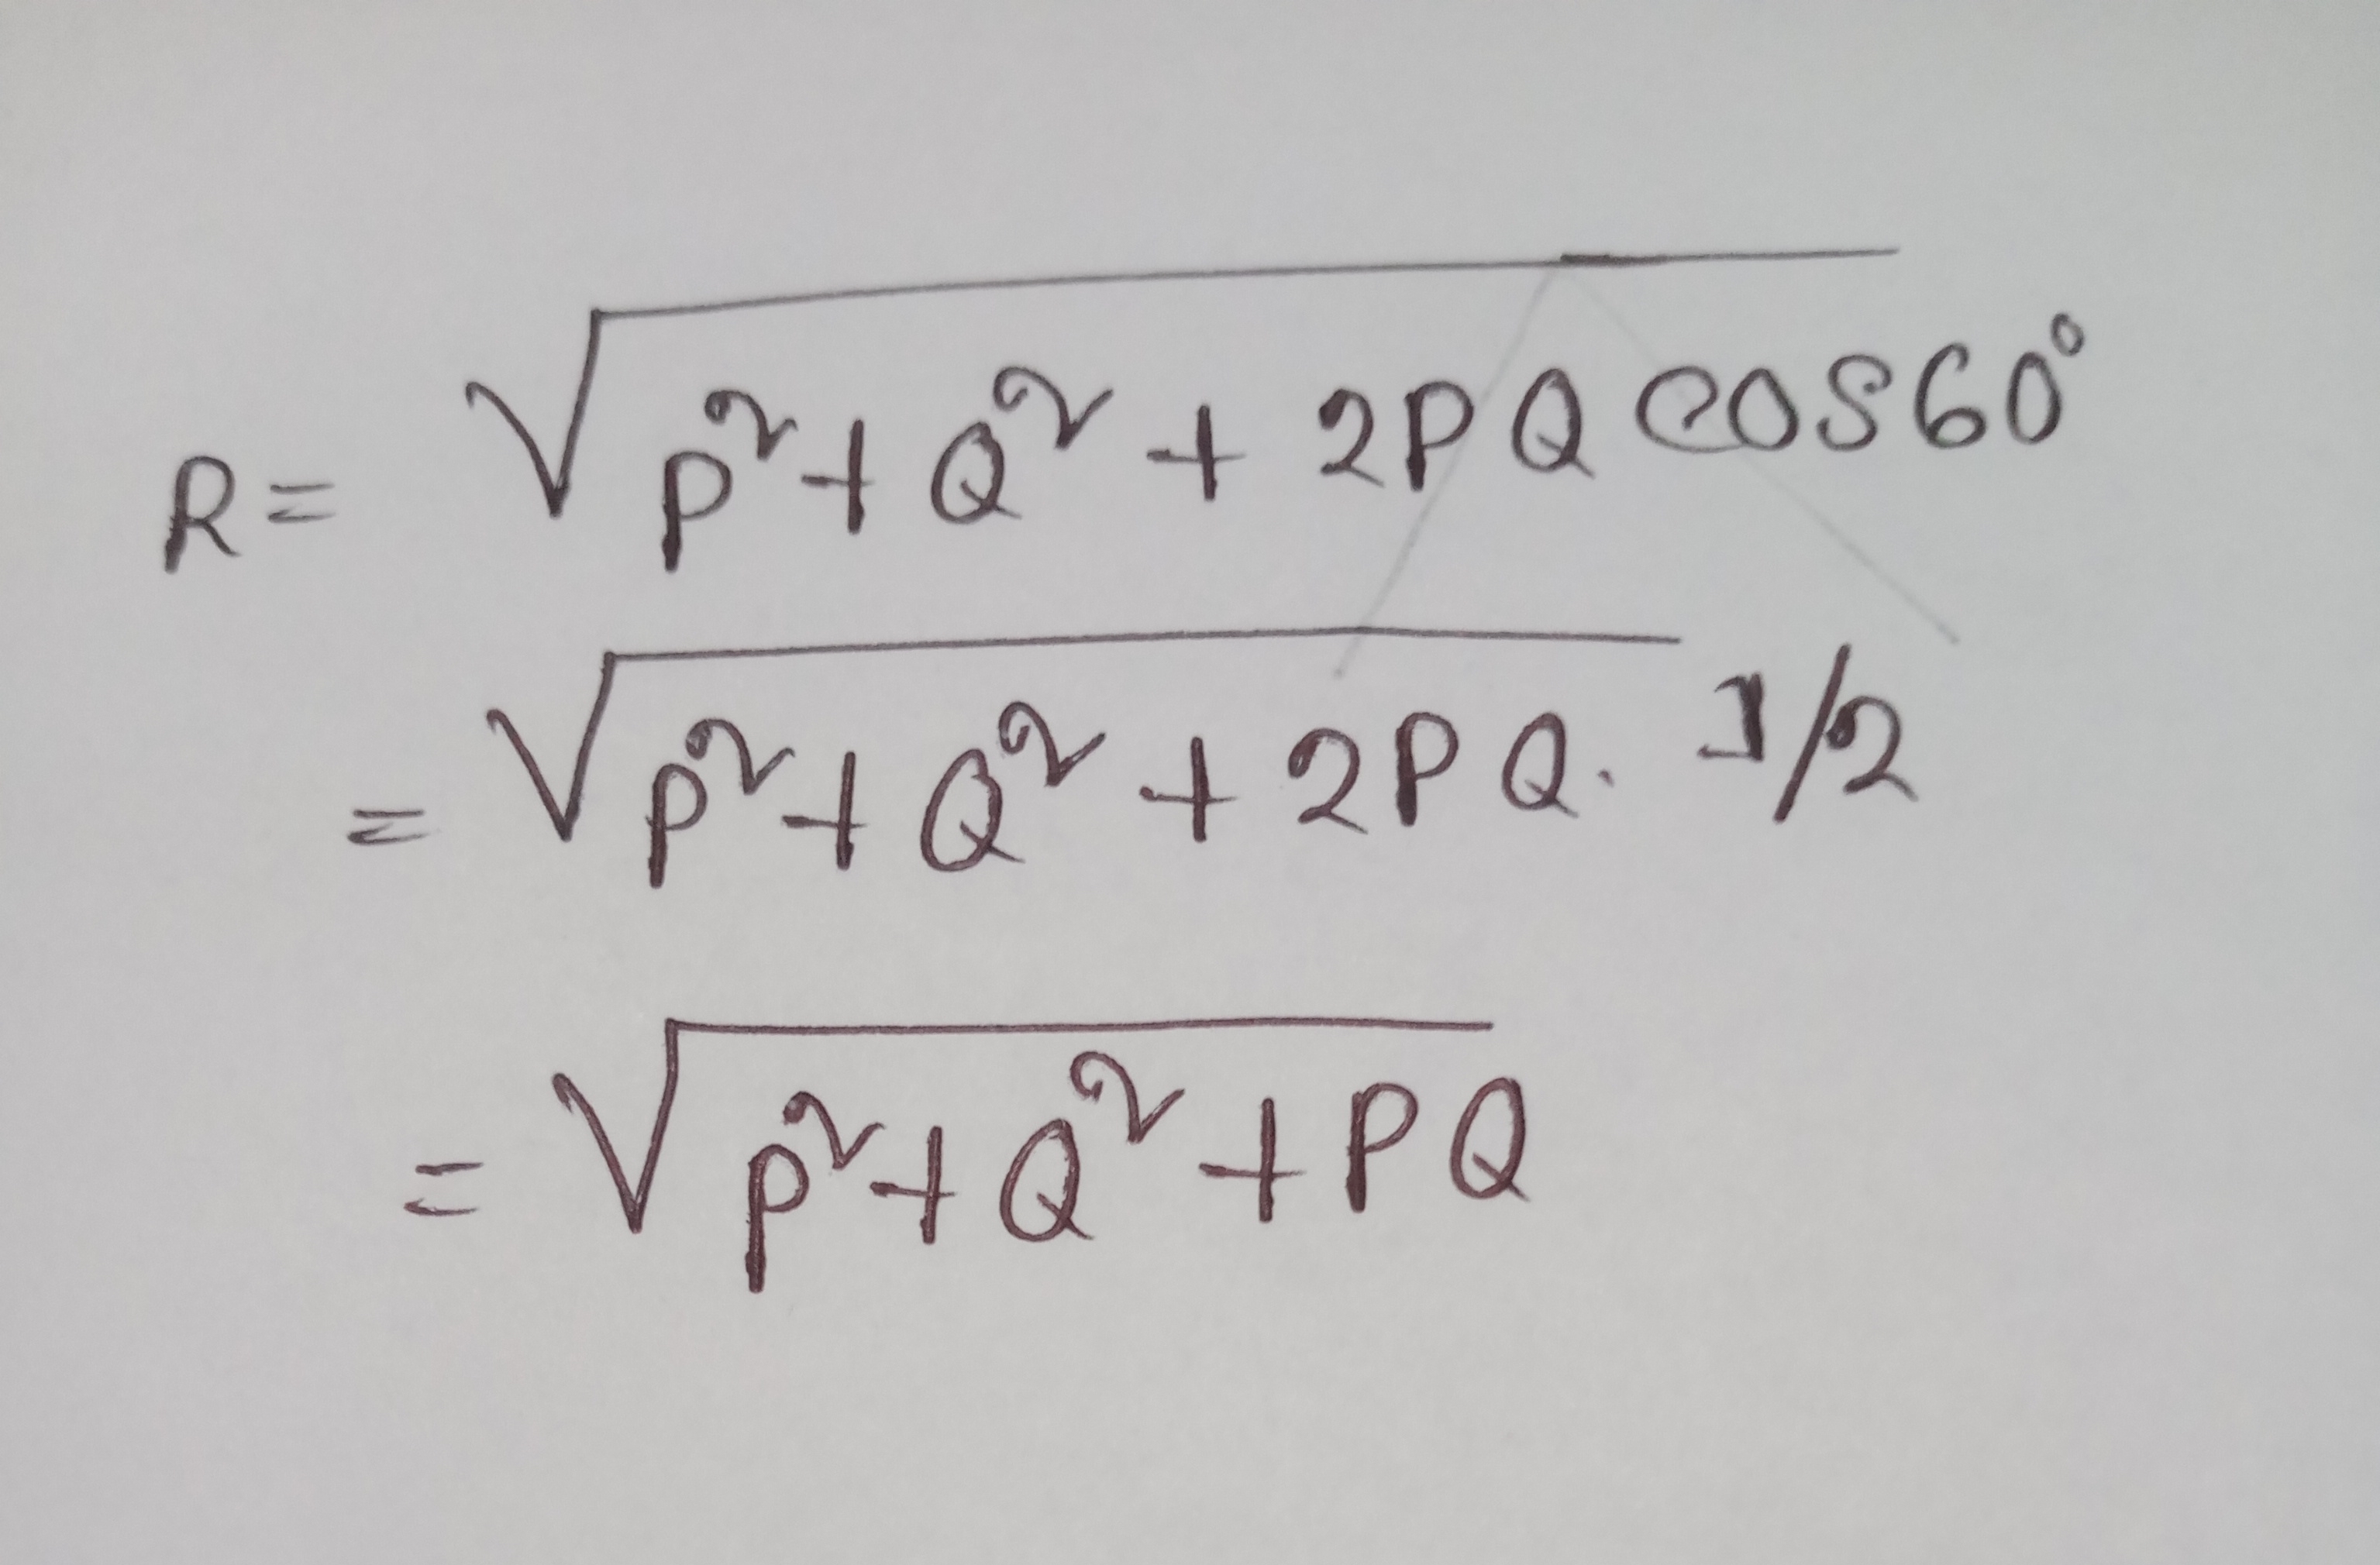 R = √(P² + Q² + 2PQ cos60°)
= √(P² + Q² + 2PQ. 1/2)
= √(P² + Q² + PQ)